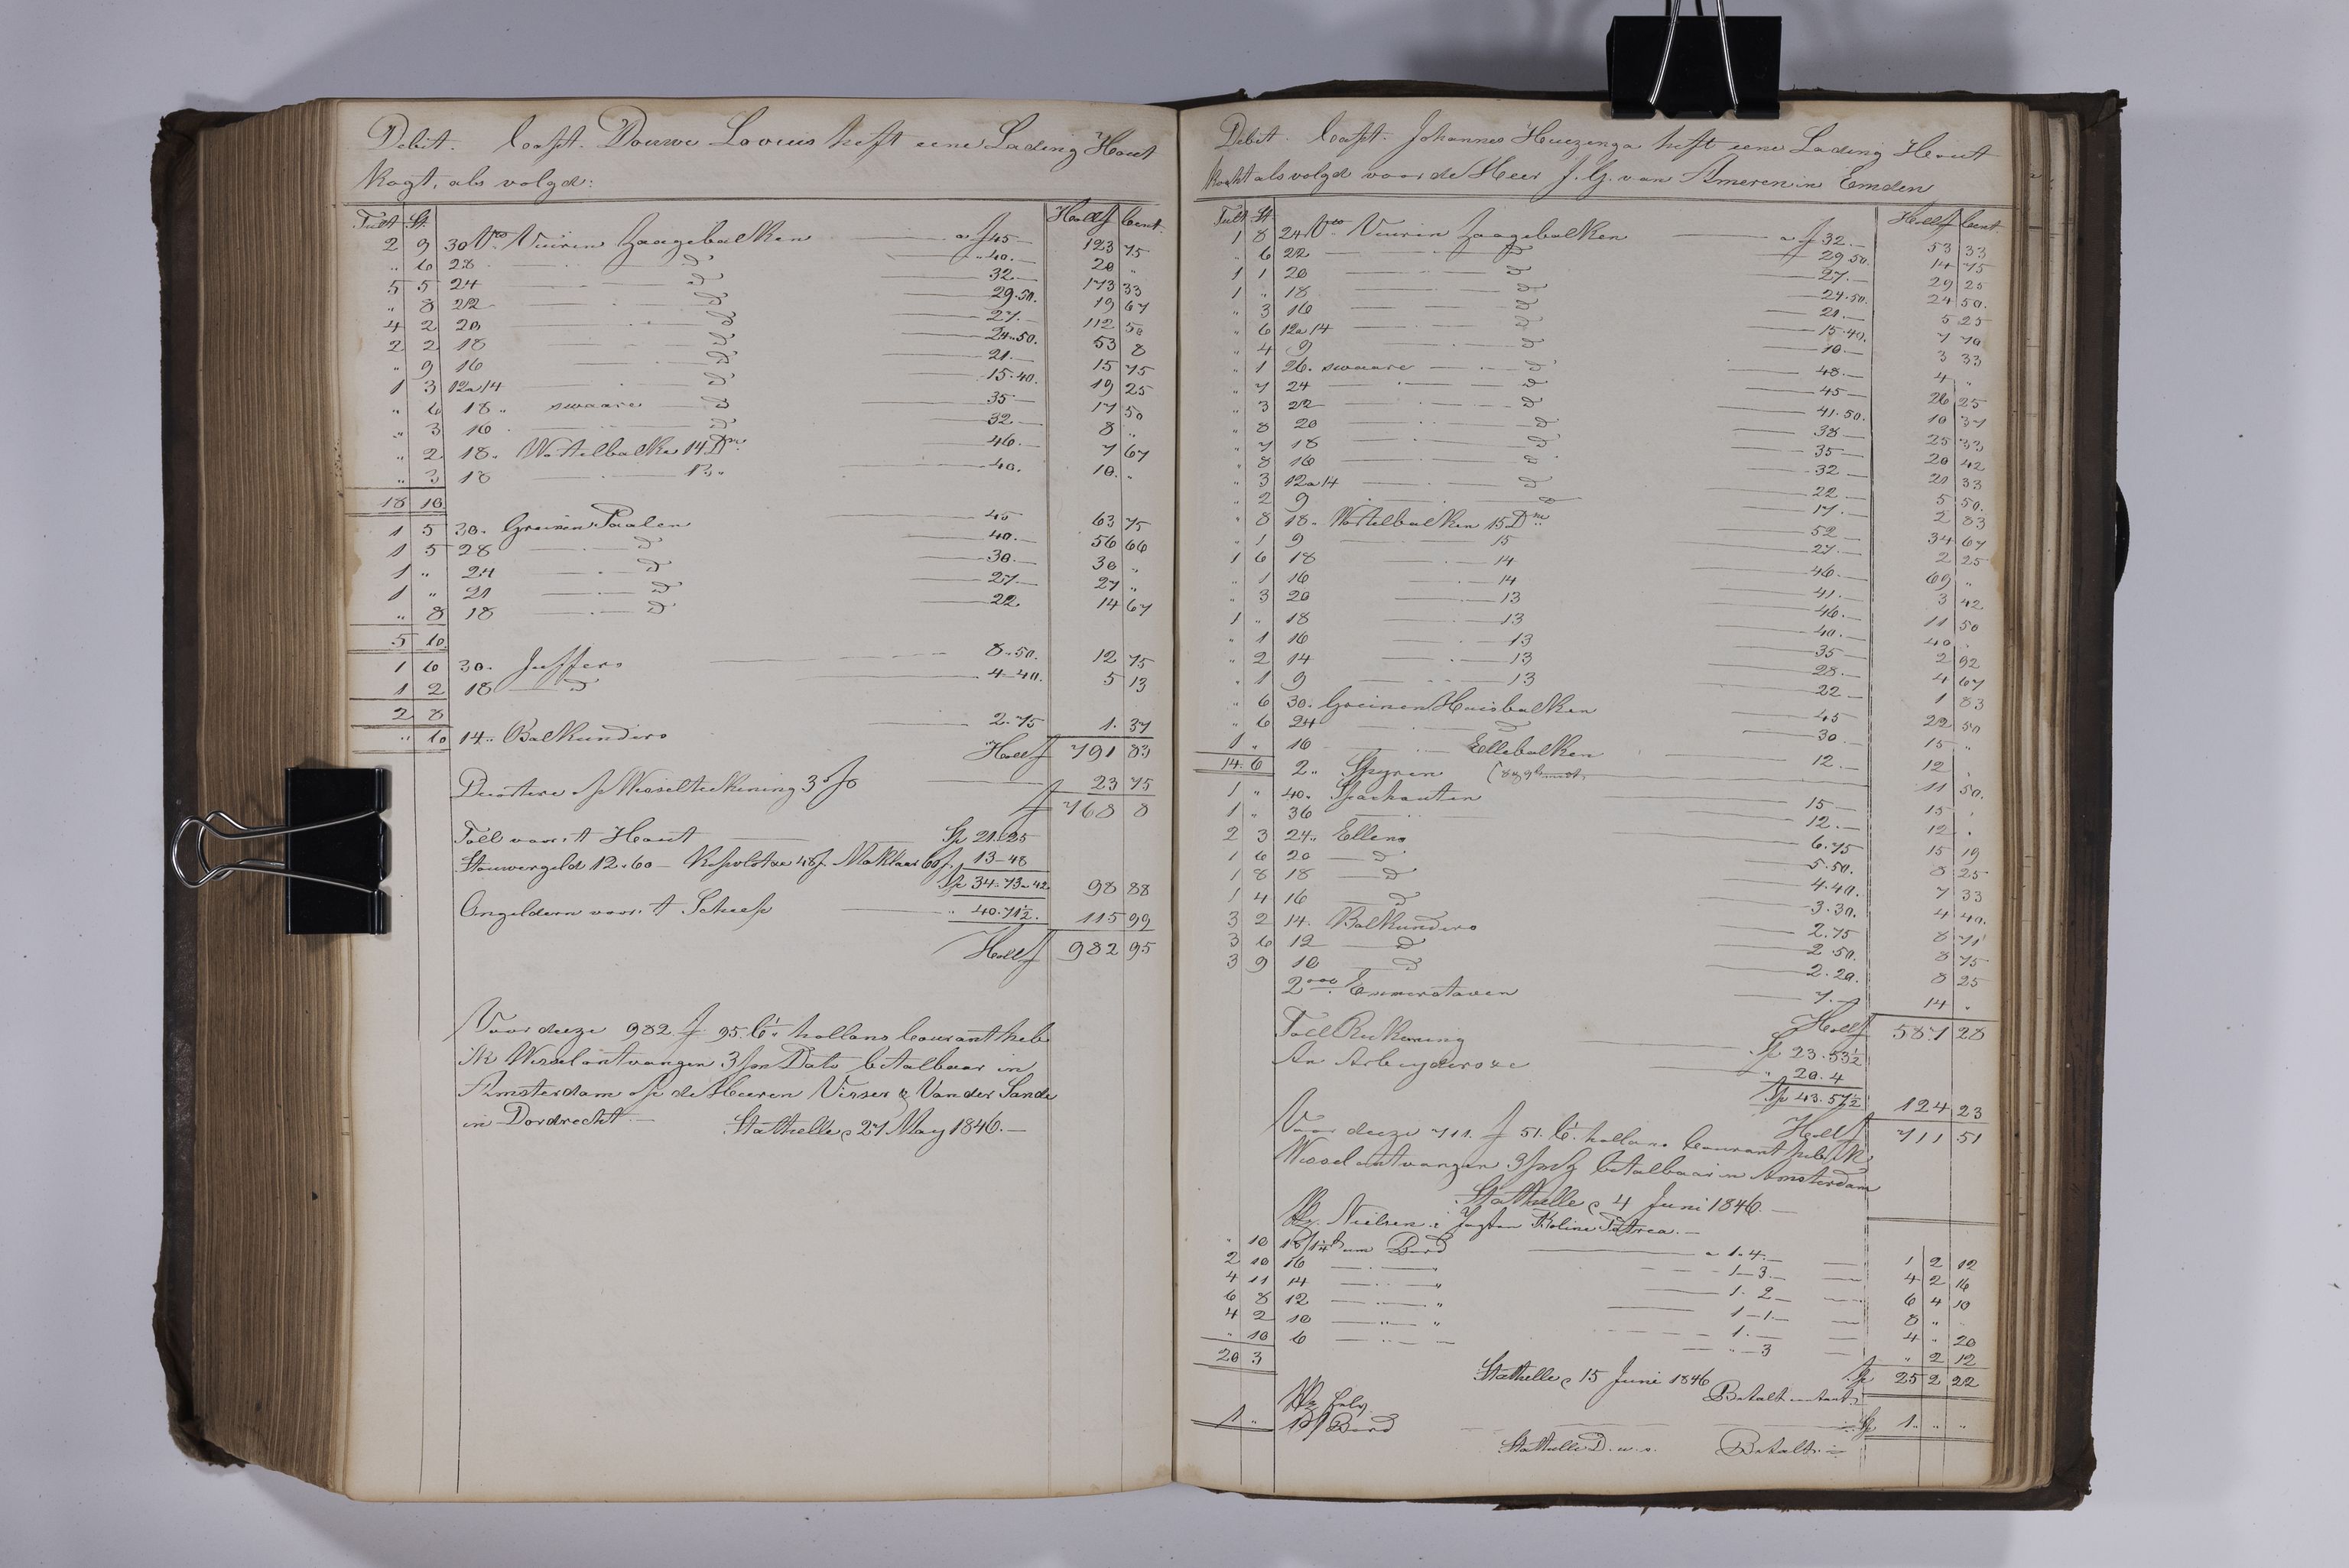 Debit. Capt. Douwe Lovius heft eene Lading Hout
Kogt, als volgd:
Tult St. Hollf Cent.
2 9 30 Vto Vuiren Zaagebalken a f 45 — 123 75
" 6 28 — d° — " 40. — 20 "
5 5 24 — d° — 32 — 173 33
" 8 22 — d° — 29.50. 19 67
4 2 20 — d° — 27. — 112 50
2 2 18 — d° — 24.50. 53 8
" 9 16 — d° — 21. — 15 75
1 3 12 a 14 — d° — 15.40. 19 25
" 6 18 " swaare — d° — 35 — 17 50
" 3 16 — d° — 32 — 8 "
" 2 18 " Wortelbalken 14 Dm. — 46. — 7 67
" 3 18 — 13 " — 40. 10. "
18 10
1 5 30. Greinen Paalen — 45 63 75
1 5 28 — d° — 40. — 56 66
1 " 24 — d° — 30. — 30 "
1 " 21 — d° — 27 — 27 "
" 8 18 — d° — 22. 14 67
5 10
1 6 30. Juffers — 8.50. 12 75
1 2 18 — d° — 4.40. 5 13
2 8
" 10 14 " Balkunders — 2.75 1. 37
Hollf 791 83
op Wisseltrekening 3 — 23 75
f 768 8
Toll voor't Hout — Sp 21.25
Stouwergeld 12.60 — 13-48
Sp 34.73-42 98 88
Ongeldern voor't Scheep — " 40.71½. 115 99
Hollf 982 95
Voor deeze 982 f 95 Ct. hollans Courant heb
ik Wissel ontvangen 3 Dato betalbaar in
Amsterdam op de Heeren Visser & Van der Sande
in Dordrecht. — Stathelle 27 May 1846. —
Debit. Capt. Johannes Huizenga heft eene Lading Hout
Kocht als volgd voor de Heer J. G. van Ameren in Emden
Tult St. Hollf Cent.
1 8 24 Vto Vuiren Zaagebalken — a f 32. — 53 33
" 6 22 — d° — 29.50. 14 75
1 1 20 — d° — 27. — 29 25
1 " 18 — d° — 24.50. 24 50.
" 3 16 — d° — 21. — 5 25
" 6 12 a 14 — d° — 15.40. 7 70
" 4 9 — d° — 10. — 3 33
" 1 26. swaare — d° — 48. — 4 "
" 7 24 — d° — 45 — 26 25
" 3 22 — d° — 41.50. 10 37
" 8 20 — d° — 38 — 25 33
" 7 18 — d° — 35 — 20 42
" 8 16 — d° — 32 — 21 33
" 3 12 a 14 — d° — 22. — 5 50.
" 2 9 — d° — 17. — 2 83
" 8 18. Wortelbalken 15 Dm. — 52 — 34 67
" 1 9 — 15 — 27. — 2 25
1 6 18 — 14 — 46. — 69 "
" 1 16 — 14 — 41. — 3 42
" 3 20 — 13 — 46. — 11 50
1 " 18 — 13 — 40. — 40 "
" 1 16 — 13 — 35 — 2 92
" 2 14 — 13 — 28. — 4 67
" 1 9 — 13 — 22 — 1 83
" 6 30. Greinen Huisbalken — 45 22 50
" 6 24 — d° — 30. — 15 "
1 " 16 — Ellebalken — 12. — 12 "
14 6 2 " Spyren — 11 50.
1 " 40. Sparhauten — 15 — 15 "
1 " 36 — 12. — 12 "
2 3 24 " Ellens — 6.75 15 19
1 6 20 — d° — 5.50. 8 25
1 8 18 — d° — 4.40. 7 33
1 4 16 — d° — 3.30. 4 40.
3 2 14. Balkunders — 2.75 8 71
3 6 12 — d° — 2.50. 8 75
3 9 10 — d° — 2.20. 8 25
2 Emmerstaven — 7. — 14 "
Hollf 587 28
Toll Rekening — Sp 23.53½
An Arbeyders &c — " 20.4
Sp 43.57½ 124 23
Hollf 711 51
Voor deeze 711. f 51. Ct. hollans Courant heb ik
Wissel ontvangen betalbaar in Amsterdam
Stathelle 4 Juni 1846. —
Nielsen i Jagten Koline Petrea. —
" 10 18/1¼ Bord — a 1.4. — 1 2 12
2 10 16 — " — 1-3. — 4 2 16
4 11 14 — " — 1-2 — 6 4 10
6 8 12 — " — 1-1. — 8 " "
4 2 10 — " — 1. — 4 " 20
" 10 6 — " — 3 " 2 12
20 3 Sp 25 2 22
Stathelle 15 Juni 1846 Betalt contant
1 " Bord — Sp 1. " "
Stathelle D. u. s. Betalt.